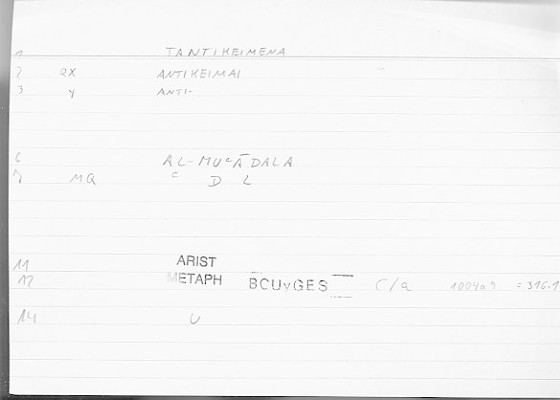 1 TANTIKEIMENA
2 QX ANTIKEIMAI
3 Y ANTI-
6 AL-MUʿĀDALA
7 MQ ʿ D L
11 ARIST
12 METAPH BOUYGES C/a 1004a9 = 316.1
14 U